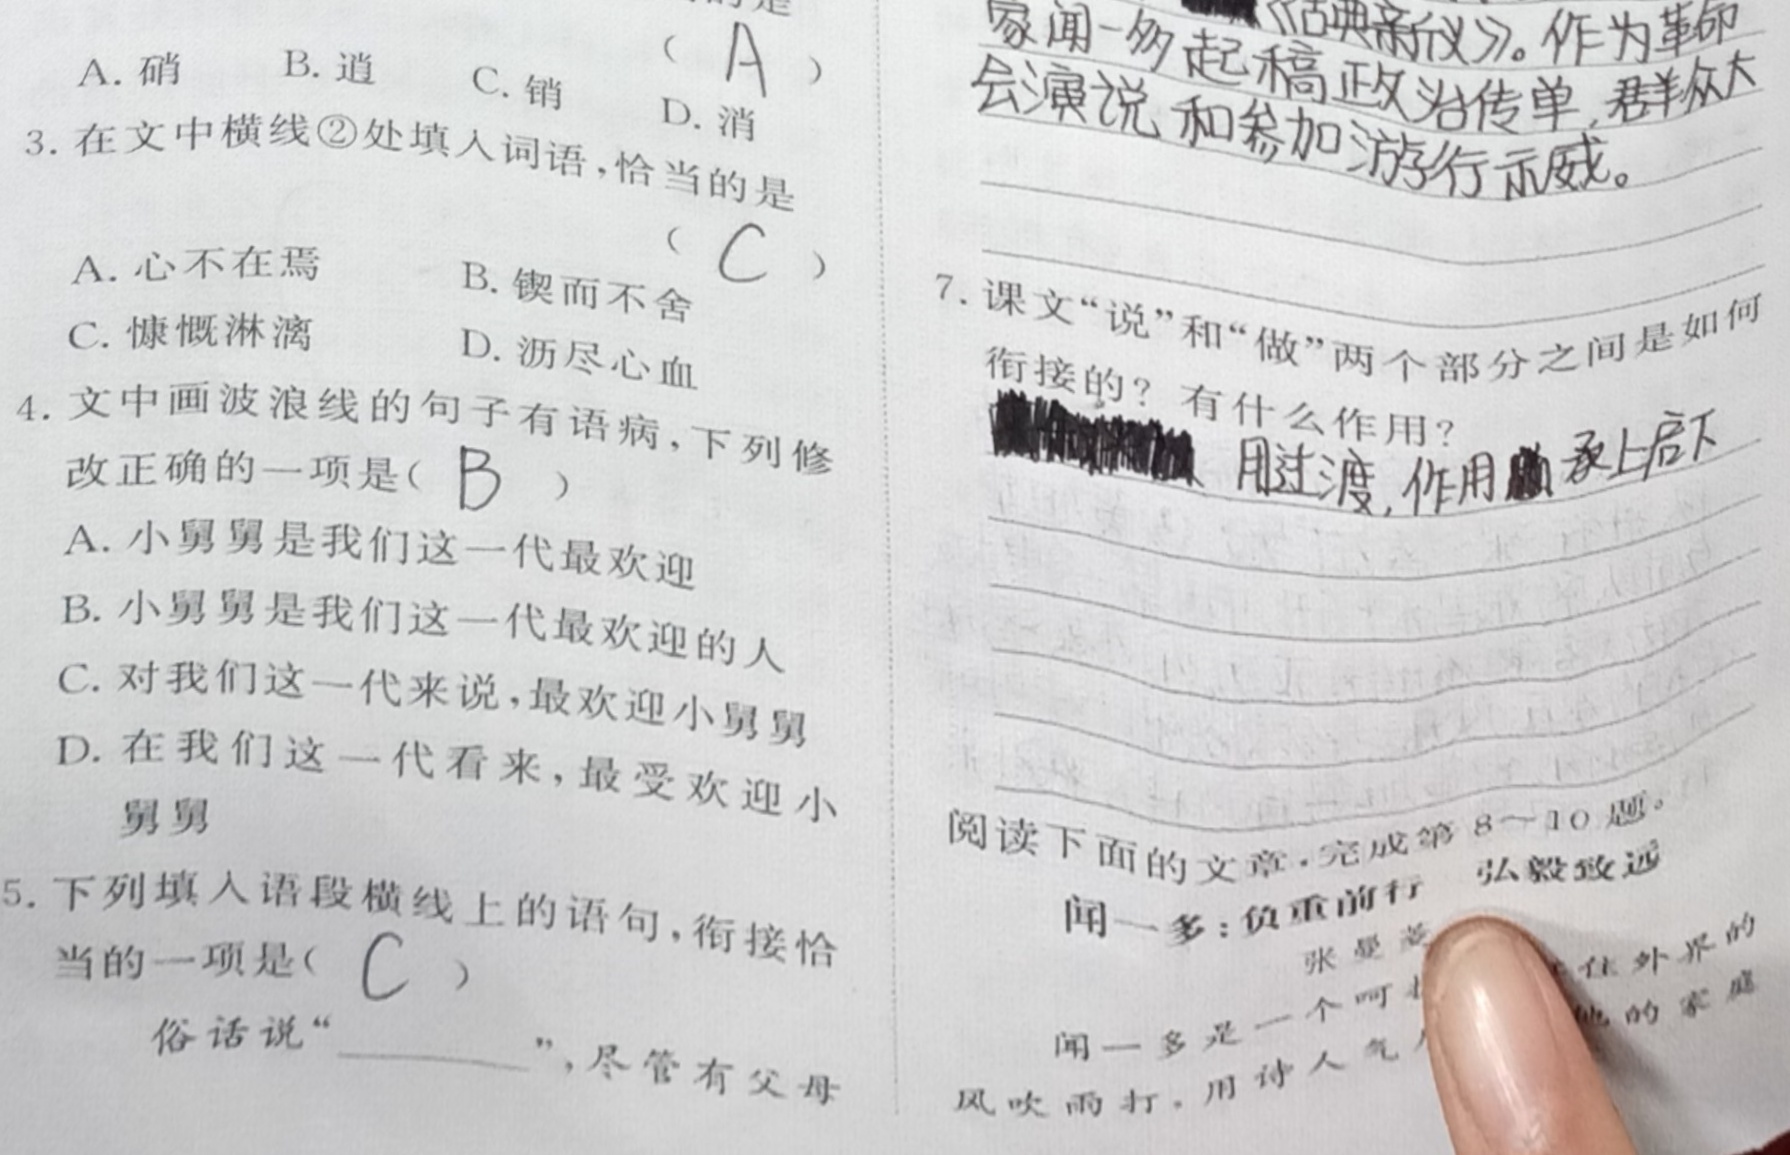 的是
( A )
A. 硝 B. 逍 C. 销 D. 消
3. 在文中横线②处填入词语，恰当的是
( C )
A. 心不在焉 B. 锲而不舍
C. 慷慨淋漓 D. 沥尽心血
4. 文中画波浪线的句子有语病，下列修
改正确的一项是( B )
A. 小舅舅是我们这一代最欢迎
B. 小舅舅是我们这一代最欢迎的人
C. 对我们这一代来说，最欢迎小舅舅
D. 在我们这一代看来，最受欢迎小
舅舅
5. 下列填入语段横线上的语句，衔接恰
当的一项是( C )
俗话说“______”，尽管有父母
《古典新仪》。作为革命
家闻一多起稿政治传单，群众大
会演说和参加游行示威。
7. 课文“说”和“做”两个部分之间是如何
衔接的？有什么作用？
用过渡，作用承上启下
阅读下面的文章，完成第8～10题。
闻一多：负重前行 弘毅致远
张曼菱
闻一多是一个呵 住外界的
风吹雨打，用诗人气 他的家庭